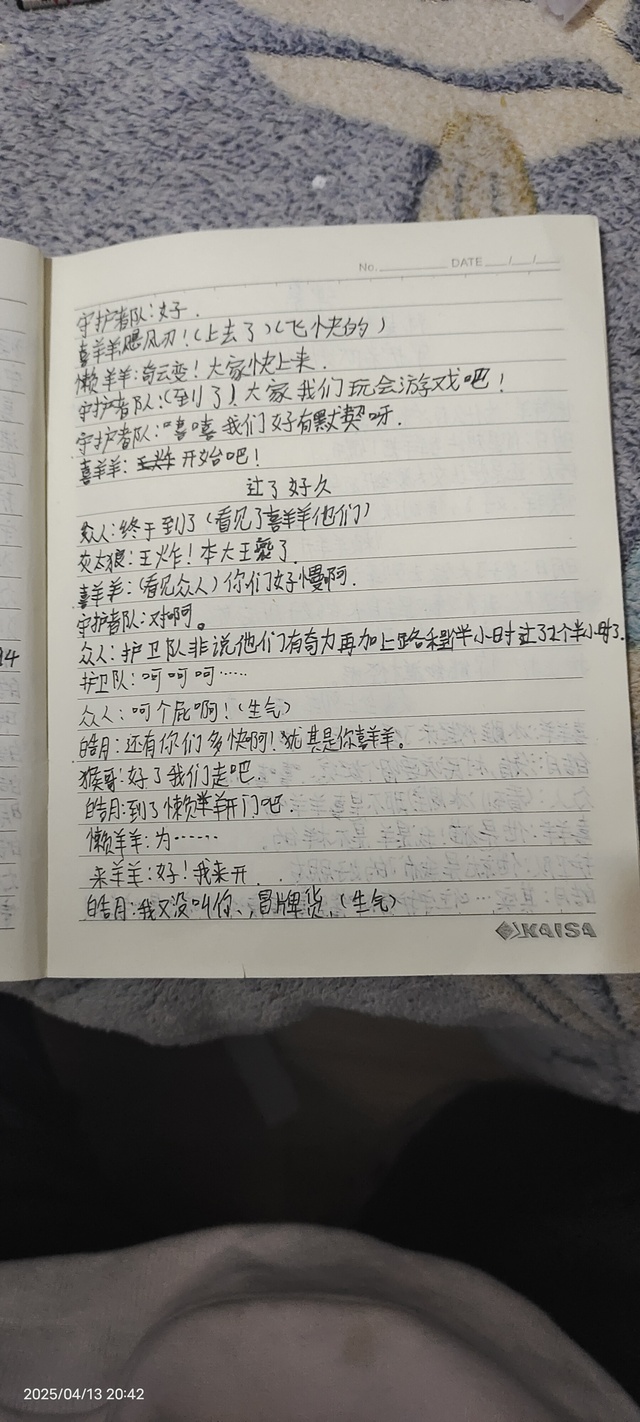 No. DATE / /
守护者队:好.
喜羊羊飓风刃!(上去了)(飞快的)
懒羊羊:奇云变!大家快上来.
守护者队:(到了)大家我们玩会游戏吧!
守护者队:嘻嘻我们好有默契呀.
喜羊羊:开始吧!
过了好久
众人:终于到了(看见了喜羊羊他们)
灰太狼:王炸!本大王赢了
喜羊羊:(看见众人)你们好慢啊.
守护者队:对啊。
众人:护卫队非说他们有奇力再加上路程半小时过了2个半小时了.
护卫队:呵呵呵……
众人:呵个屁啊!(生气)
皓月:还有你们多快啊!犹其是你喜羊羊。
猴哥:好了我们走吧.
皓月:到了懒羊羊开门吧.
懒羊羊:为……
来羊羊:好!我来开.
皓月:我又没叫你,冒牌货.(生气)
KAISA
14
2025/04/13 20:42